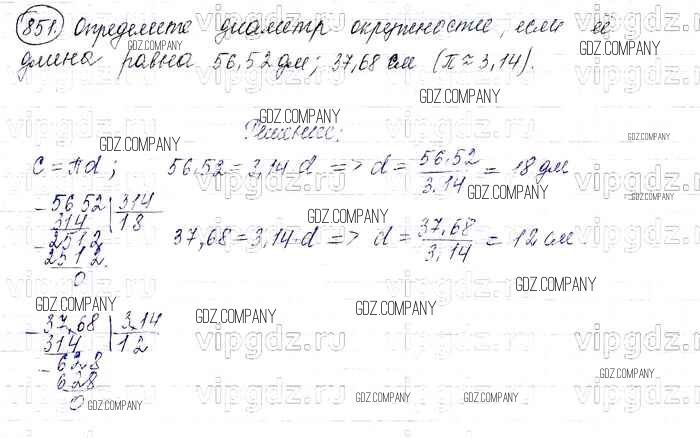 851. Определите диаметр окружности, если её
длина равна 56,52 дм; 37,68 см (π ≈ 3,14).
Решение:
C = πd; 56,52 = 3,14 · d => d = 56,52 / 3,14 = 18 дм
37,68 = 3,14 · d => d = 37,68 / 3,14 = 12 см.
- 5652 | 314
314 | 18
- 2512
2512
0
- 37,68 | 3,14
314 | 12
- 628
628
0
GDZ.COMPANY
vipgdz.ru